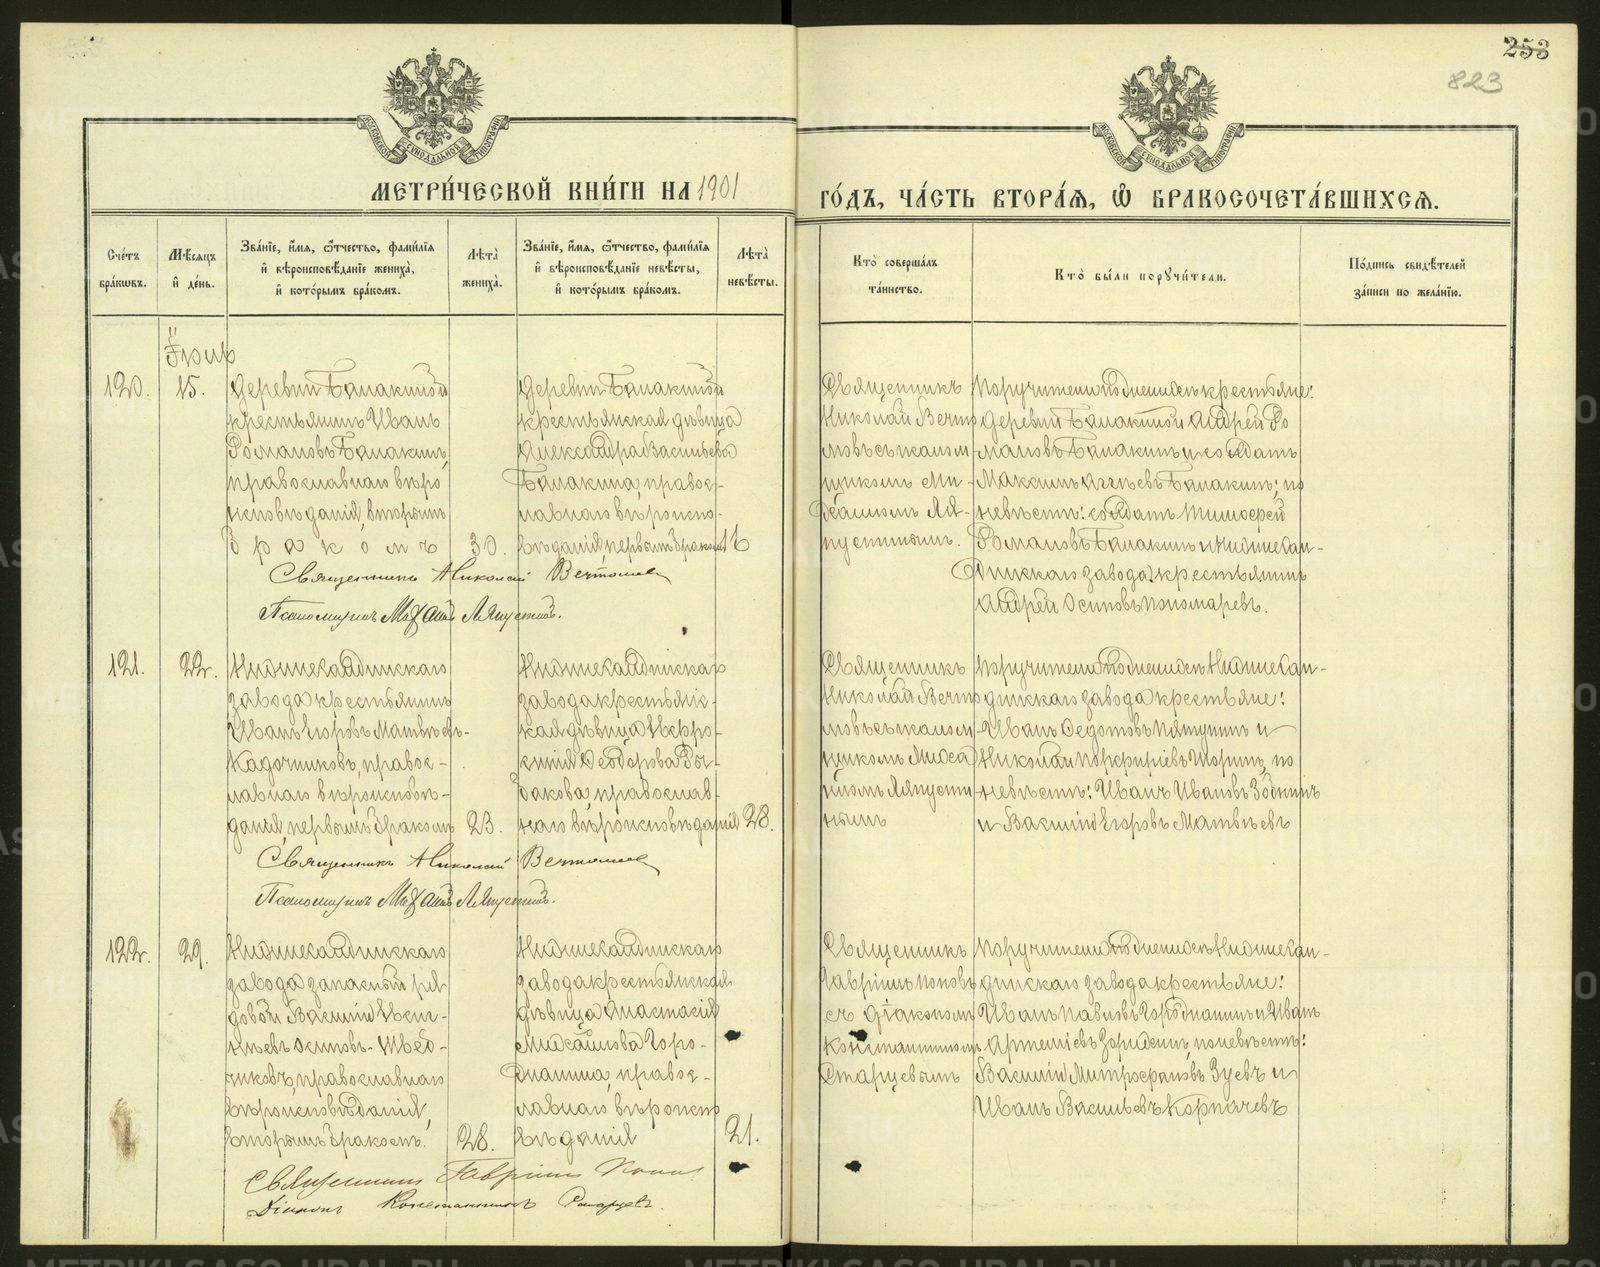 253
823
МОСКОВСКОЙ СУНОДАЛЬНОЙ ТИПОГРАФИИ
МОСКОВСКОЙ СУНОДАЛЬНОЙ ТИПОГРАФИИ
МЕТРИ́ЧЕСКОЙ КНИ́ГИ НА 1901
ГО́ДЪ, ЧА́СТЬ ВТОРА́Ѧ, Ѽ БРАКОСОЧЕТА́ВШИХСѦ.
Сче́тъ бра́кѡвъ.
Мѣ́сѧцъ и́ де́нь.
Зва́нїе, и́мѧ, ѻ́тчество, фами́лїѧ
и́ вѣроисповѣ́данїе жениха̀,
и́ кото́рымъ бра́комъ.
Лѣта̀ жениха̀.
Зва́нїе, и́мѧ, ѻ́тчество, фами́лїѧ
и́ вѣроисповѣ́данїе невѣ́сты,
и́ кото́рымъ бра́комъ.
Лѣта̀ невѣ́сты.
Кто̀ соверша́лъ
та́инство.
Кто̀ бы́ли порꙋчи́тели.
По́дпись свидѣ́телей
за́писи по жела́нїю.
120.
15.
деревни Балакиной
крестьянинъ Иванъ
Романовъ Балакинъ,
православнаго вѣро
исповѣданія, вторымъ
бракомъ
30.
деревни Балакиной
крестьянская дѣвица
Александра Васильева
Балакина, правос-
лавнаго вѣроиспо-
вѣданія, первымъ бракомъ
Священникъ
Николай Вечто
мовъ съ псалом
щикомъ Ми-
хаиломъ Ля-
пустинымъ.
Поручители подписались крестьяне:
деревни Балакиной Андрей Ро
мановъ Балакинъ и солдатъ
Максимъ Аггѣевъ Балакинъ; по
невѣстѣ: солдатъ Тимофей
Романовъ Балакинъ и Нижнесал-
динскаго завода крестьянинъ
Андрей Осиповъ Пономаревъ.
Священникъ Николай Вечтомов
Псаломщикъ Михаилъ Ляпустинъ.
121.
22.
Нижнесалдинскаго
завода крестьянинъ
Иванъ Егоровъ Матвѣевъ-
Кадочниковъ, правос-
лавнаго вѣроисповѣ-
данія, первымъ бракомъ
23.
Нижнесалдинскаго
завода крестьянс-
кая дѣвица Евфро-
синія Ѳеодорова Ры-
бакова, православ-
наго вѣроисповѣданія
28.
Священникъ
Николай Вечто
мовъ съ псалом
щикомъ Миха
иломъ Ляпусти
нымъ
Поручители подписались Нижнесал-
динскаго завода крестьяне:
Иванъ Ѳедотовъ Пятунинъ и
Николай Порфирьевъ Зоринъ, по
невѣстѣ: Иванъ Ивановъ Зобнинъ
и Василій Егоровъ Матвѣевъ
Священникъ Николай Вечтомов
Псаломщикъ Михаилъ Ляпустинъ.
122.
29.
Нижнесалдинскаго
завода запасный ря
довой Василій Евге-
ніевъ Осиповъ-Швед-
чиковъ, православнаго
вѣроисповѣданія,
вторымъ бракомъ.
28.
Нижнесалдинскаго
завода крестьянская
дѣвица Анастасія
Михаилова Горо-
днанина, правос-
лавнаго вѣроиспо
вѣданія
21.
Священникъ
Гавріилъ Поповъ
съ діакономъ
Константиномъ
Старцевымъ
Поручители подписались Нижнесал-
динскаго завода крестьяне:
Иванъ Павловъ и Иванъ
Артеміевъ по невѣстѣ:
Василій Митрофановъ Зуевъ и
Иванъ Васильевъ Корпачевъ
Священникъ Гавріилъ Поповъ
Діаконъ Константинъ Старцевъ.
METRIKI.GASO-URAL.RU